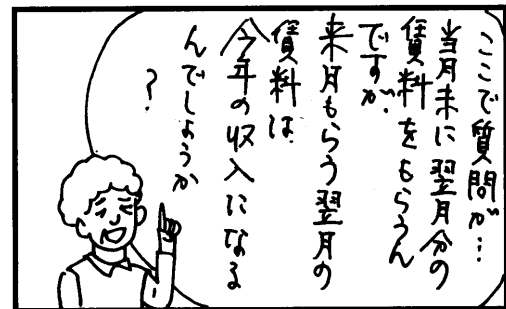 ここで質問が…
当月末に翌月分の
賃料をもらうん
ですが、
来月もらう翌月の
賃料は、
今年の収入になる
んでしょうか
？